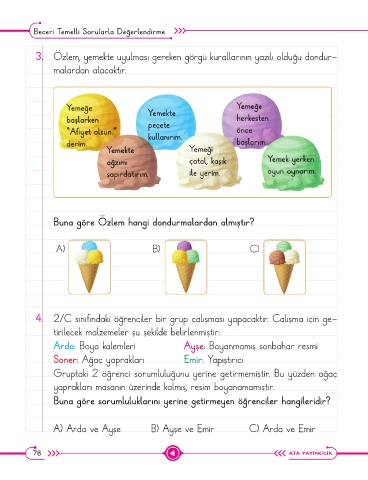 Beceri Temelli Sorularla Değerlendirme
3. Özlem, yemekte uyulması gereken görgü kurallarının yazılı olduğu dondur-
malardan alacaktır.
Yemeğe
başlarken
"Afiyet olsun."
derim.
Yemekte
peçete
kullanırım.
Yemeğe
herkesten
önce
başlarım.
Yemekte
ağzımı
şapırdatırım.
Yemeği
çatal, kaşık
ile yerim.
Yemek yerken
oyun oynarım.
Buna göre Özlem hangi dondurmalardan almıştır?
A) B) C)
4. 2/C sınıfındaki öğrenciler bir grup çalışması yapacaktır. Çalışma için ge-
tirilecek malzemeler şu şekilde belirlenmiştir:
Arda: Boya kalemleri Ayşe: Boyanmamış sonbahar resmi
Soner: Ağaç yaprakları Emir: Yapıştırıcı
Gruptaki 2 öğrenci sorumluluğunu yerine getirmemiştir. Bu yüzden ağaç
yaprakları masanın üzerinde kalmış, resim boyanamamıştır.
Buna göre sorumluluklarını yerine getirmeyen öğrenciler hangileridir?
A) Arda ve Ayşe B) Ayşe ve Emir C) Arda ve Emir
78 ATA YAYINCILIK